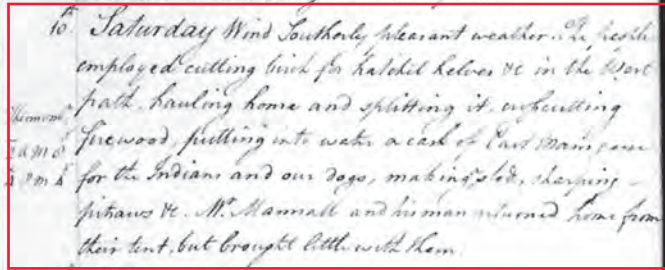 10th Saturday Wind Southerly pleasant weather. The people
employed cutting birch for hatchet helves &c in the West
path, hauling home and splitting it,
Thermomr
firewood, putting into water a cask of East Main
for the Indians and our dogs, making sleds, sharping
pitsaws &c. Mr. Mannall and his man returned home from
their tent, but brought little with them.